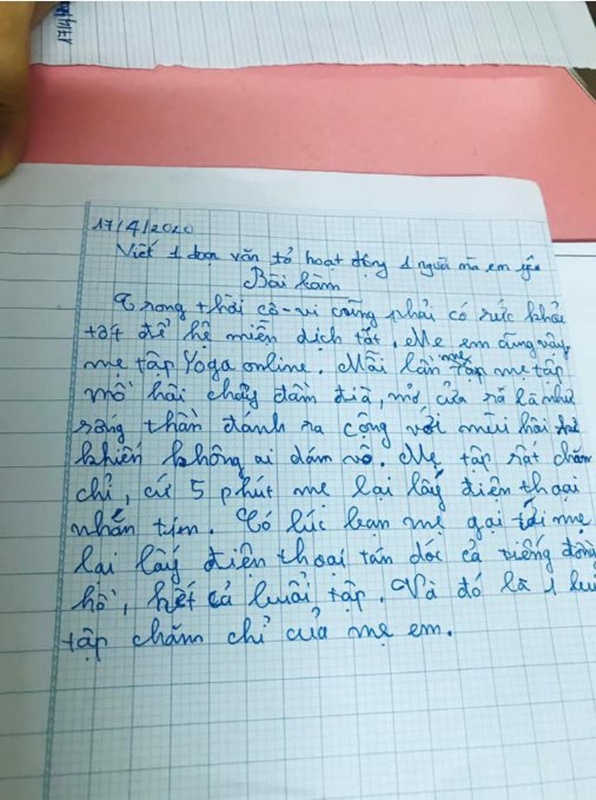 17/4/2020
Viết 1 đoạn văn tả hoạt động 1 người mà em yêu
Bài làm
Trong thời cô-vi cũng phải có sức khỏe
tốt để hệ miễn dịch tốt. Mẹ em cũng vậy
mẹ tập Yoga online. Mỗi lần mẹ tập
mồ hôi chảy đầm đìa, mở cửa ra là như
sóng thần đánh ra cộng với mùi hôi
khiến không ai dám vô. Mẹ tập rất chăm
chỉ, cứ 5 phút mẹ lại lấy điện thoại
nhắn tin. Có lúc bạn mẹ gọi tới mẹ
lại lấy điện thoại tán dóc cả tiếng đồng
hồ, hết cả buổi tập. Và đó là 1 buổi
tập chăm chỉ của mẹ em.